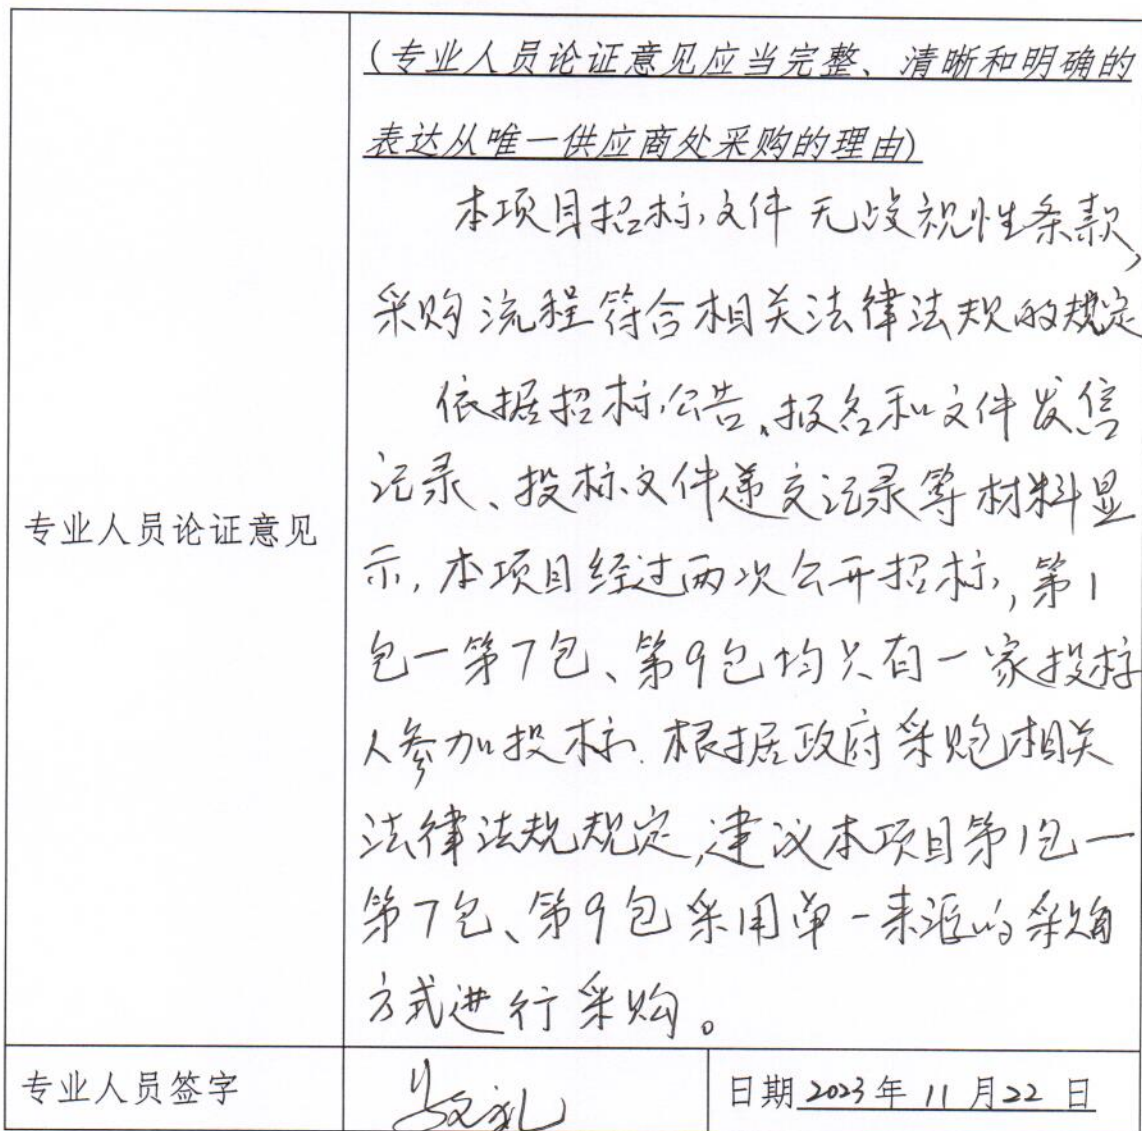 (专业人员论证意见应当完整、清晰和明确的
表达从唯一供应商处采购的理由)
本项目招标文件无歧视性条款,
采购流程符合相关法律法规的规定
依据招标公告、报名和文件发售
记录、投标文件递交记录等材料显
示,本项目经过两次公开招标,第1
包一第7包、第9包均只有一家投标
人参加投标.根据政府采购相关
法律法规规定,建议本项目第1包一
第7包、第9包采用单一来源的采购
方式进行采购。
专业人员论证意见
专业人员签字
日期 2023年 11月22日